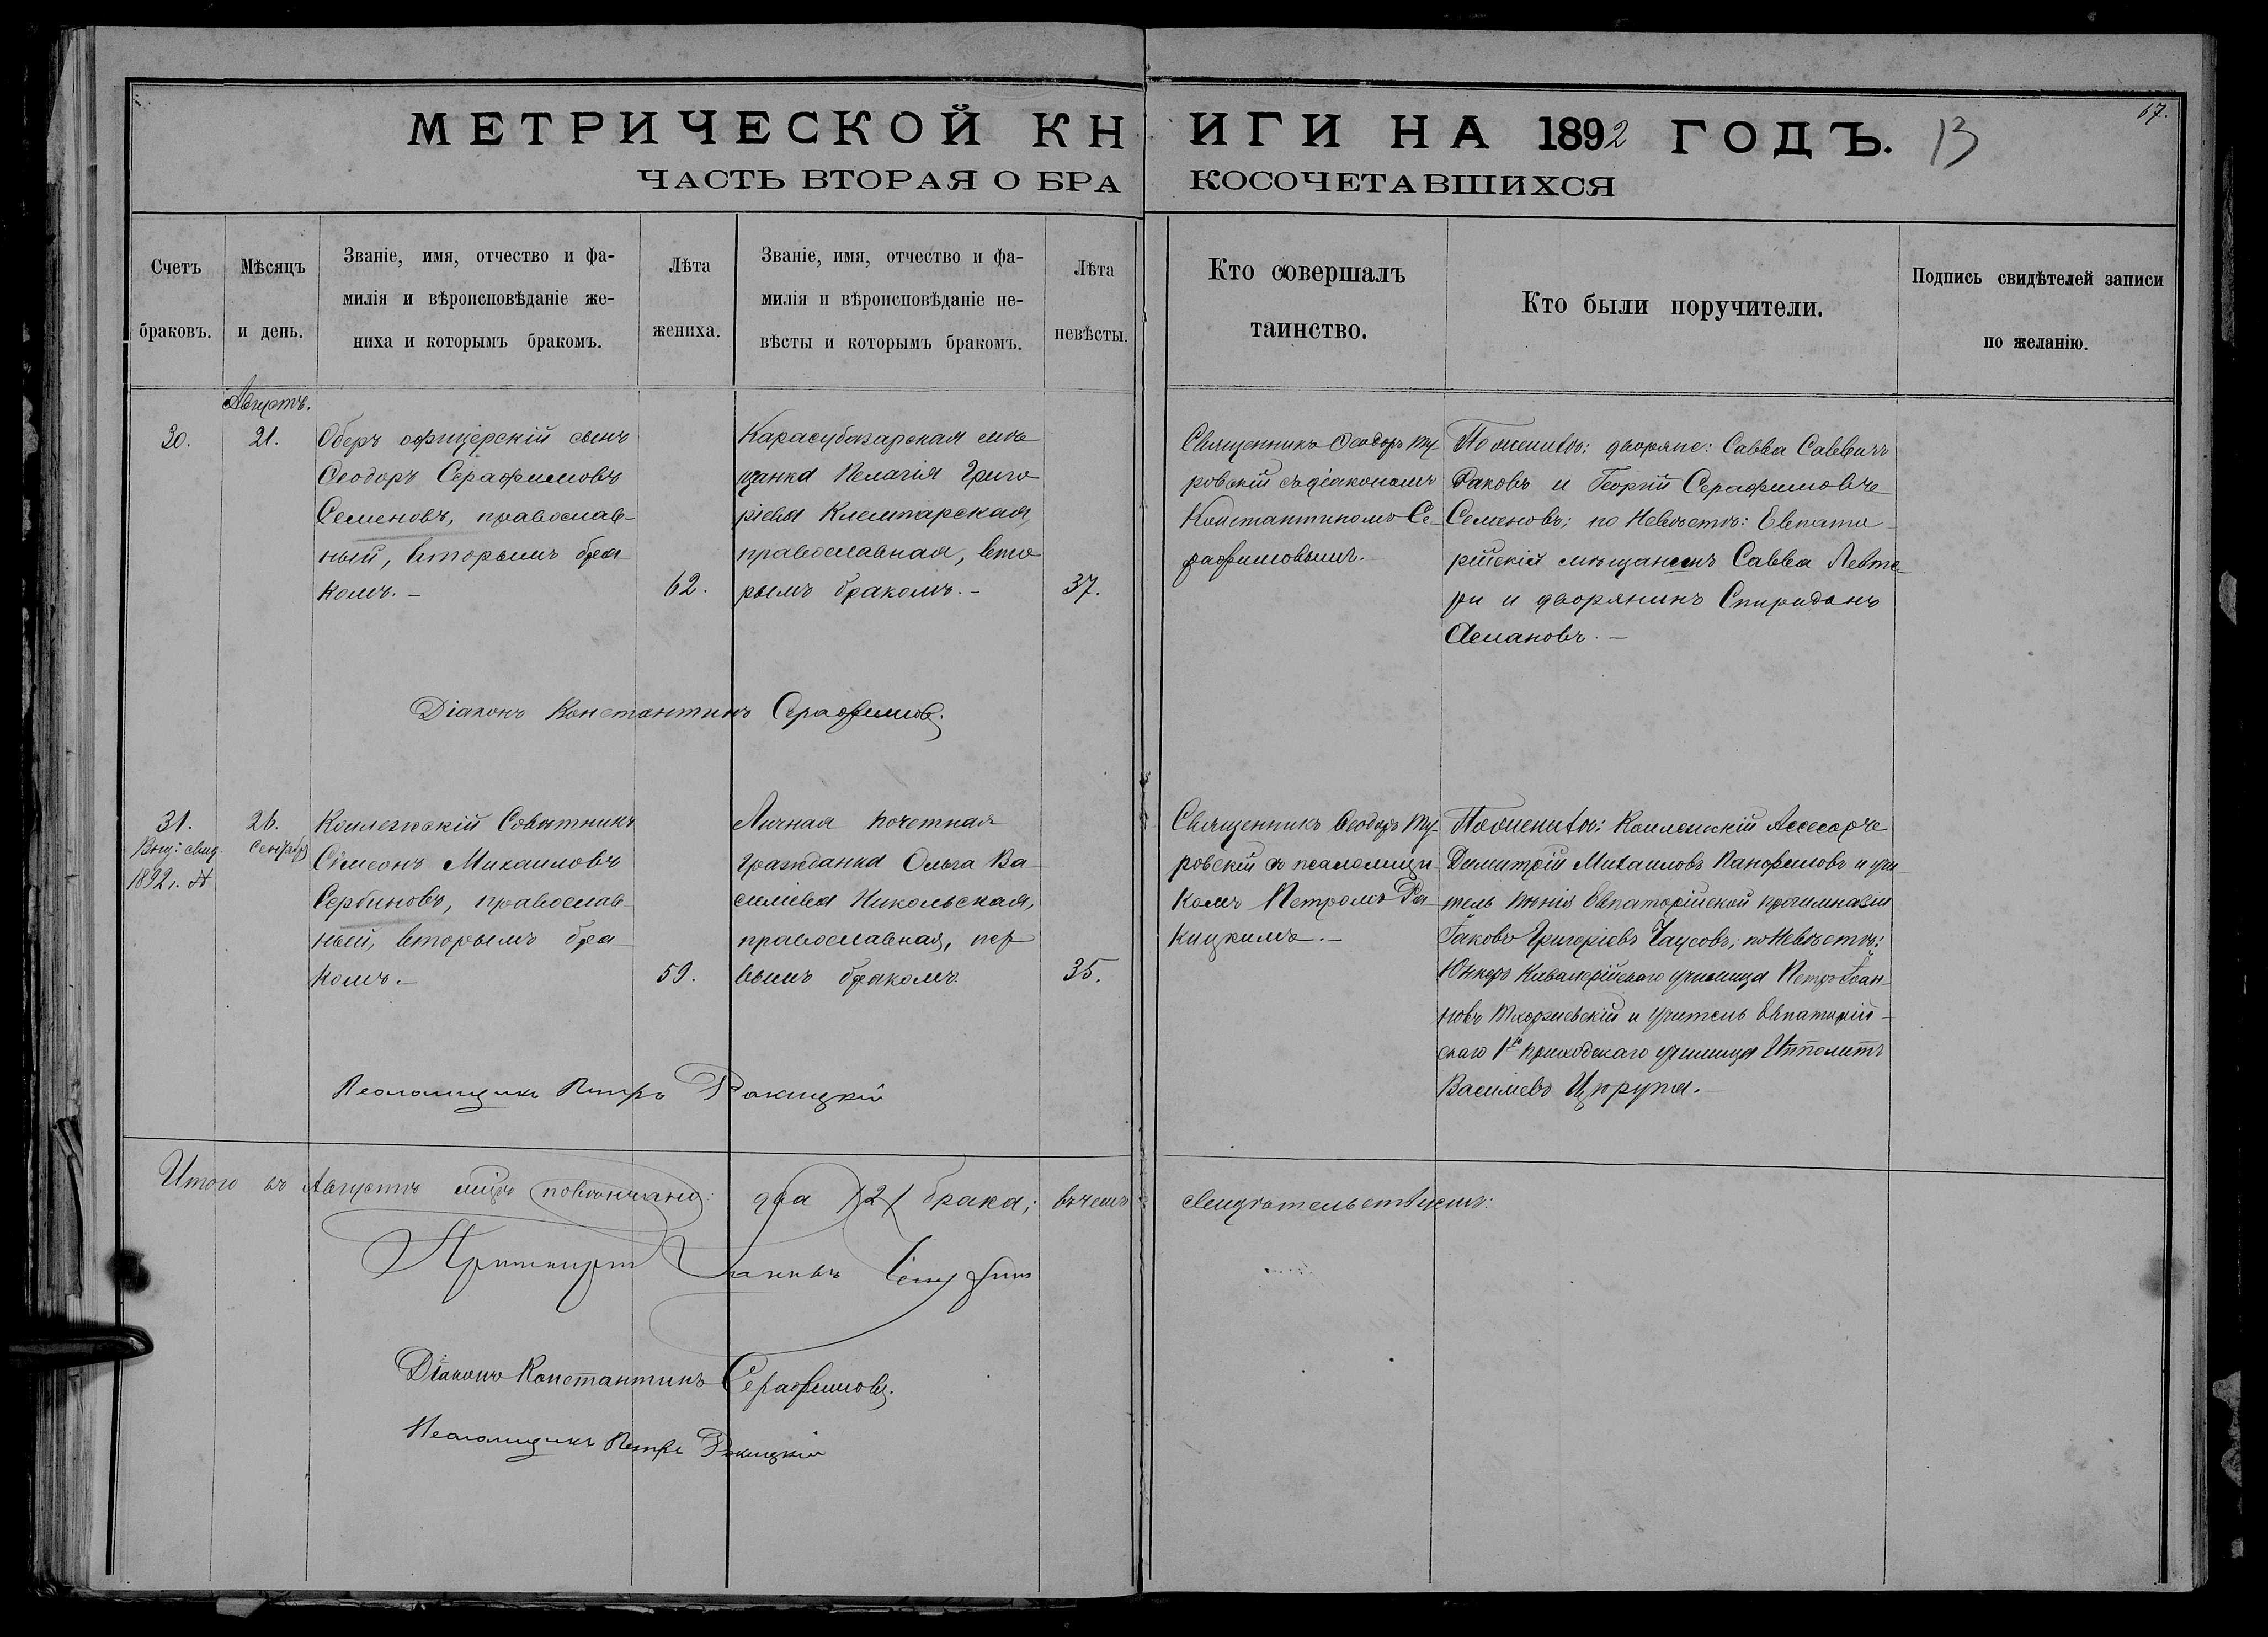 МЕТРИЧЕСКОЙ КНИГИ НА 1892 ГОДЪ. 13
67.
ЧАСТЬ ВТОРАЯ О БРАКОСОЧЕТАВШИХСЯ
Счетъ
браковъ.
Мѣсяцъ
и день.
Званіе, имя, отчество и фа-
милія и вѣроисповѣданіе же-
ниха и которымъ бракомъ.
Лѣта
жениха.
Званіе, имя, отчество и фа-
милія и вѣроисповѣданіе не-
вѣсты и которымъ бракомъ.
Лѣта
невѣсты.
Кто совершалъ
таинство.
Кто были поручители.
Подпись свидѣтелей записи
по желанію.
Августъ.
30.
21.
Оберъ офицерскій сынъ
Ѳеодоръ Серафимовъ
Семеновъ, православ-
ный, вторымъ бра-
комъ. –
62.
Карасубазарская мѣ
щанка Пелагія Григо
ріева Клемпарская,
православная, вто
рымъ бракомъ. –
37.
Священникъ Ѳеодоръ Ту-
ровскій съ діакономъ
Константиномъ Се-
рафимовымъ. –
По женихѣ: дворяне: Савва Саввичъ
Раковъ и Георгій Серафимовъ
Семеновъ; по невѣстѣ: Евпато
рійскій мѣщанинъ Савва Левте-
ри и дворянинъ Спиридонъ
Аслановъ. –
Діаконъ Константинъ Серафимовъ.
31.
Выд: свид.
1892 г.
26.
Сентября
Коллежскій Совѣтникъ
Симеонъ Михаиловъ
Сербиновъ, православ
ный, вторымъ бра
комъ. –
59.
Личная почетная
гражданка Ольга Ва
силіева Никольская,
православная, пер
вымъ бракомъ.
35.
Священникъ Ѳеодоръ Ту-
ровскій съ псаломщи-
комъ Петромъ Ра-
кицкимъ. –
По женихѣ: Коллежскій Ассесоръ
Димитрій Михаиловъ Панфиловъ и учи-
тель пѣнія Евпаторійской прогимназіи
Іаковъ Григоріевъ Чаусовъ; по невѣстѣ:
Юнкеръ Кавалерійскаго училища Петръ Іоан-
новъ Тхоржевскій и учитель Евпаторій-
скаго 1го приходскаго училища Ипполитъ
Василіевъ Цюрупа. –
Псаломщикъ Петръ Ракицкій
Итого въ Августѣ мцѣ повѣнчано: два /2/ брака; въ чемъ свидѣтельствуемъ:
Протоіерей Іаковъ
Діаконъ Константинъ Серафимовъ.
Псаломщикъ Петръ Ракицкій